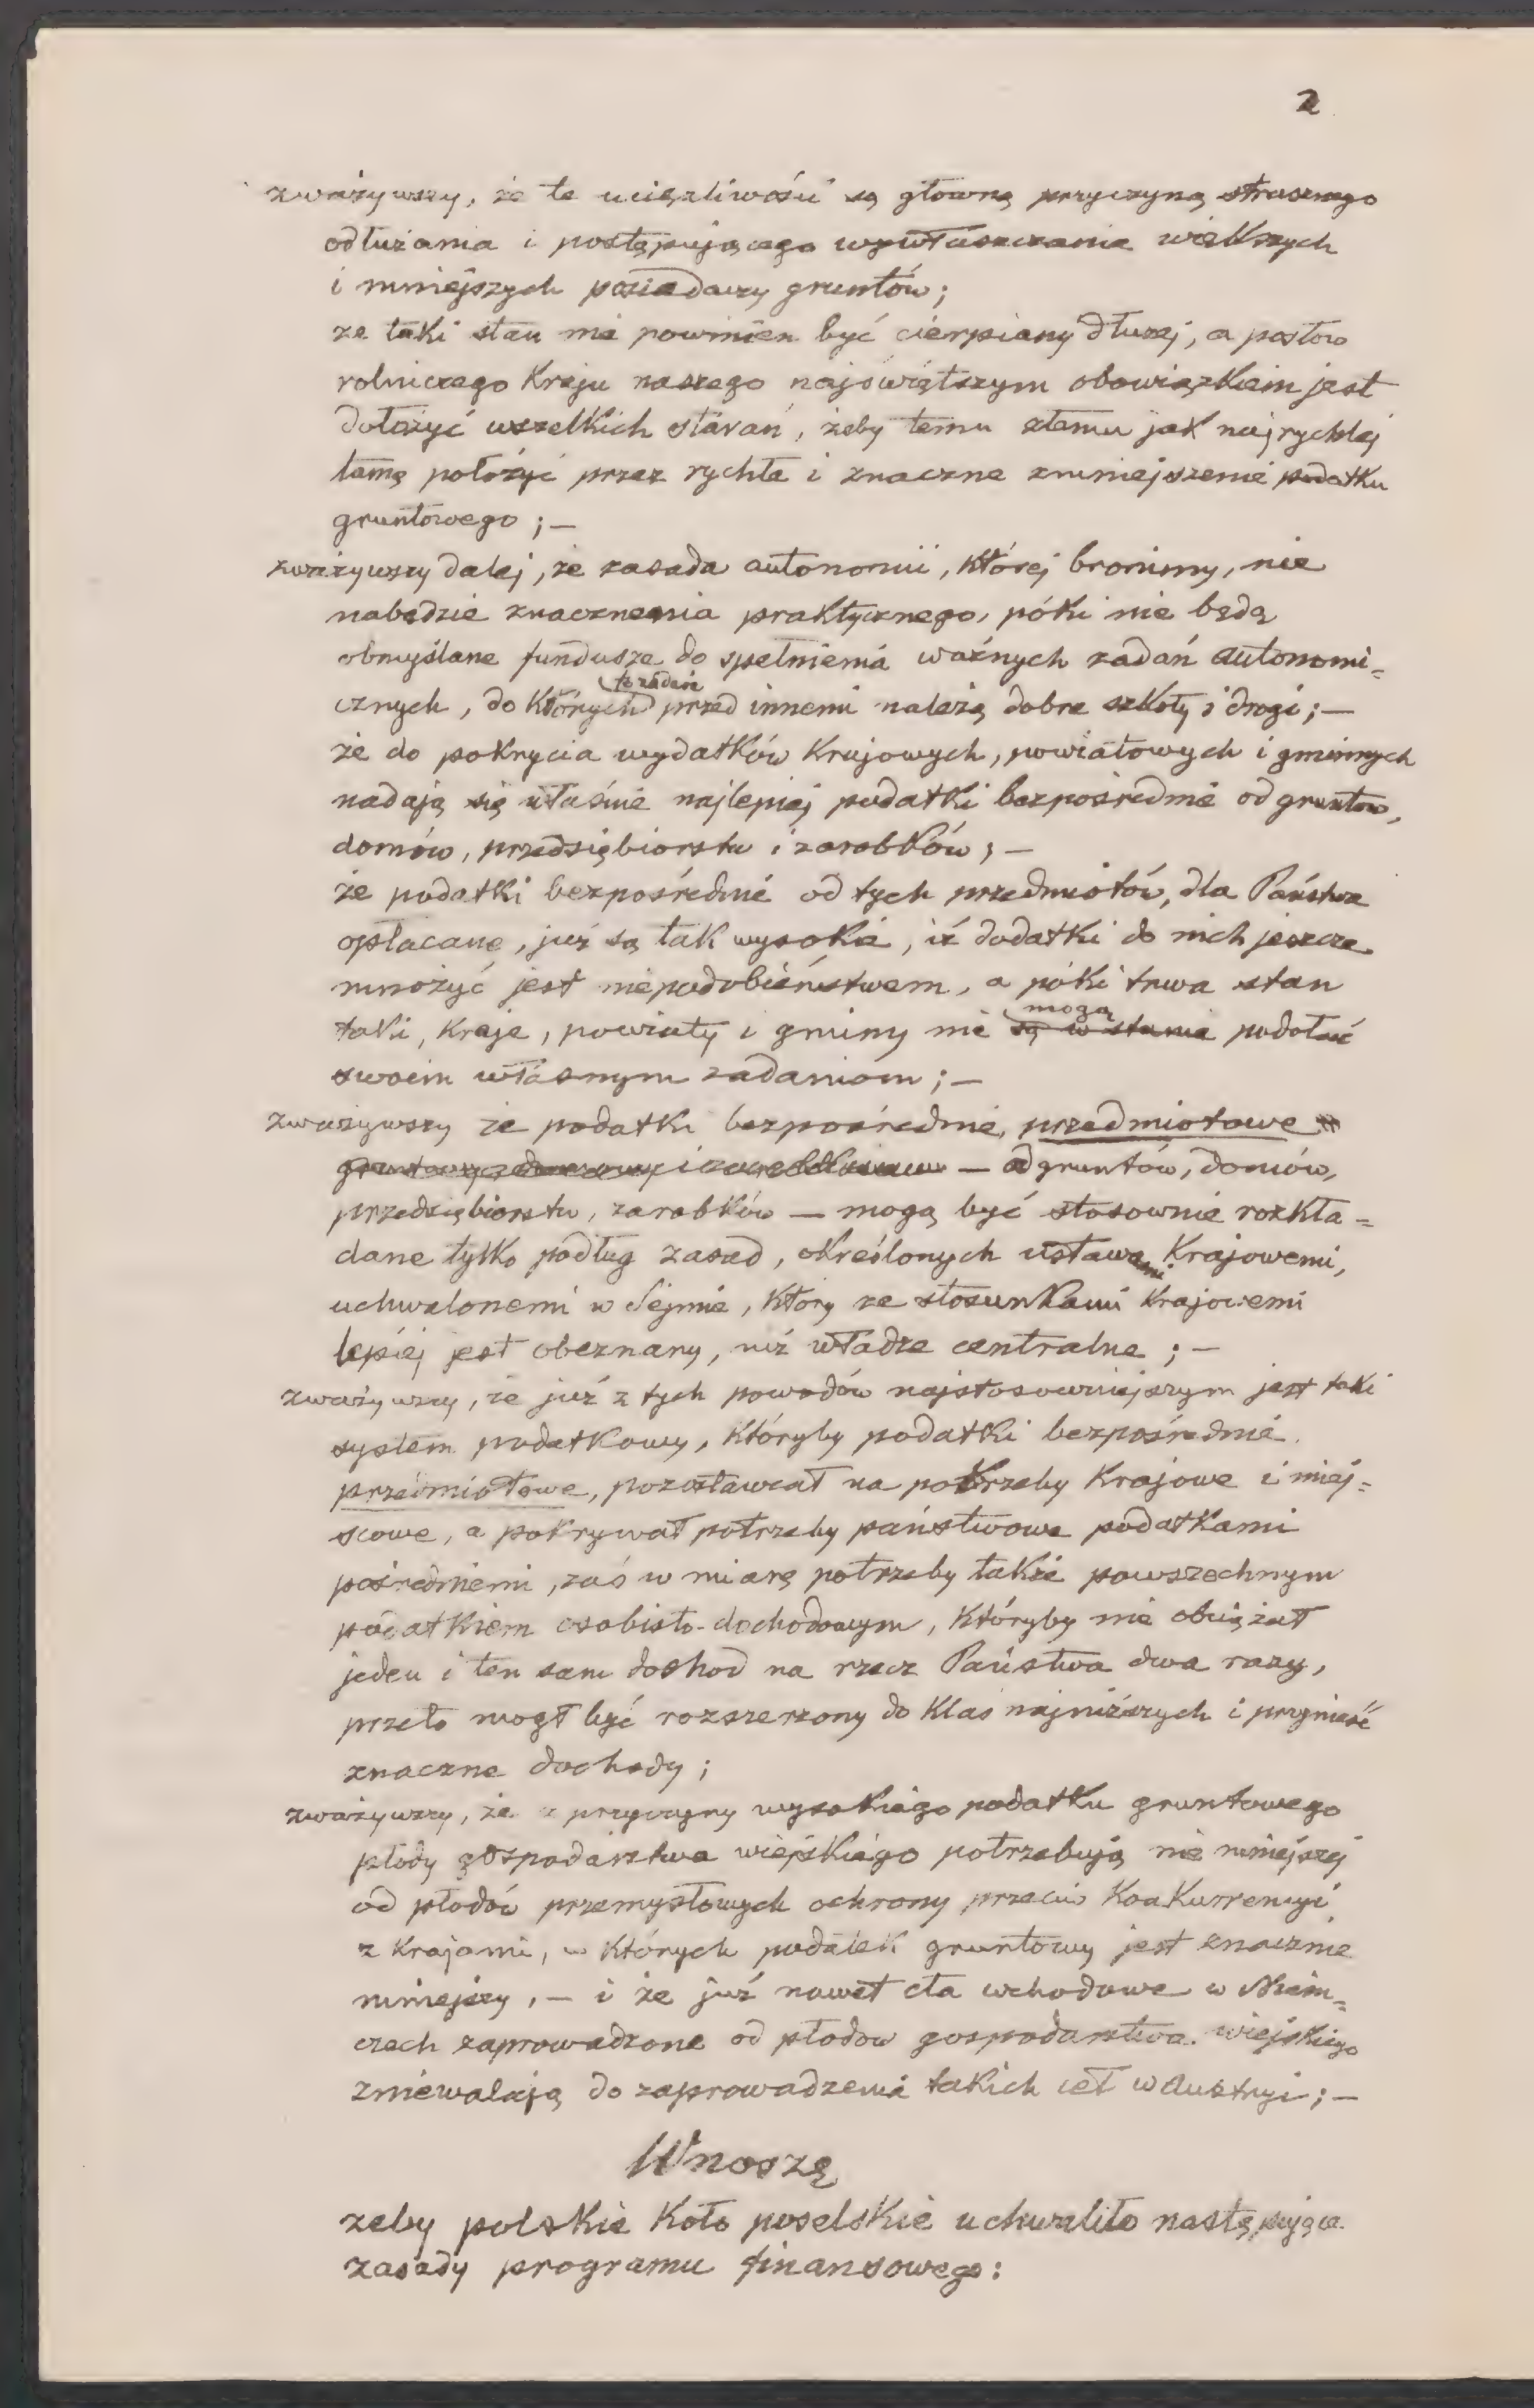 2
zważywszy, że te uciążliwości są główną przyczyną strasznego
odłużania i postępującego wywłaszczania większych
i mniejszych posiadaczy gruntów;
że taki stan nie powinien być cierpiany dłużej, a posłów
rolniczego Kraju naszego najświętszym obowiązkiem jest
dołożyć wszelkich starań, żeby temu złemu jak najrychlej
tamę położyć przez rychłe i znaczne zmniejszenie podatku
gruntowego; —
zważywszy dalej, że zasada autonomii, której bronimy, nie
nabędzie znaczenia praktycznego, póki nie będą
obmyślane fundusze do spełnienia ważnych zadań autonomi=
cznych, do których przed innemi należą dobre szkoły i drogi; —
że do pokrycia wydatków Krajowych, powiatowych i gminnych
nadają się właśnie najlepiej podatki bezpośrednie od gruntów,
domów, przedsiębiorstw i zarobków; —
że podatki bezpośrednie od tych przedmiotów, dla Państwa
opłacane, już są tak wysokie, iż dodatki do nich jeszcze
mnożyć jest niepodobieństwem, a póki trwa stan
mogą
taki, Kraje, powiaty i gminy nie są w stanie podołać
swoim własnym zadaniom; —
zważywszy że podatki bezpośrednie, przedmiotowe
— od gruntów, domów,
przedsiębiorstw, zarobków — mogą być stosownie rozkła=
dane tylko podług zasad, określonych ustawami Krajowemi,
uchwalonemi w Sejmie, który ze stosunkami Krajowemi
lepiej jest obeznany, niż władze centralne; —
zważywszy, że już z tych powodów najstosowniejszym jest taki
system podatkowy, któryby podatki bezpośrednie
przedmiotowe, pozostawiał na potrzeby Krajowe i miej=
scowe, a pokrywał potrzeby państwowe podatkami
pośredniemi, zaś w miarę potrzeby także powszechnym
podatkiem osobisto-dochodowym, któryby nie obciążał
jeden i ten sam dochód na rzecz Państwa dwa razy,
przeto mógł być rozszerzony do klas najniższych i przynieść
znaczne dochody;
zważywszy, że z przyczyny wysokiego podatku gruntowego
płody gospodarstwa wiejskiego potrzebują nie mniejszej
od płodów przemysłowych ochrony przeciw Konkurrencyi
z krajami, w których podatek gruntowy jest znacznie
mniejszy, — i że już nawet cła wchodowe w Niem=
czech zaprowadzone od płodów gospodarstwa wiejskiego
zniewalają do zaprowadzenia takich ceł w Austryi; —
Wnoszę
żeby polskie Koło poselskie uchwaliło następujące
zasady programu finansowego: